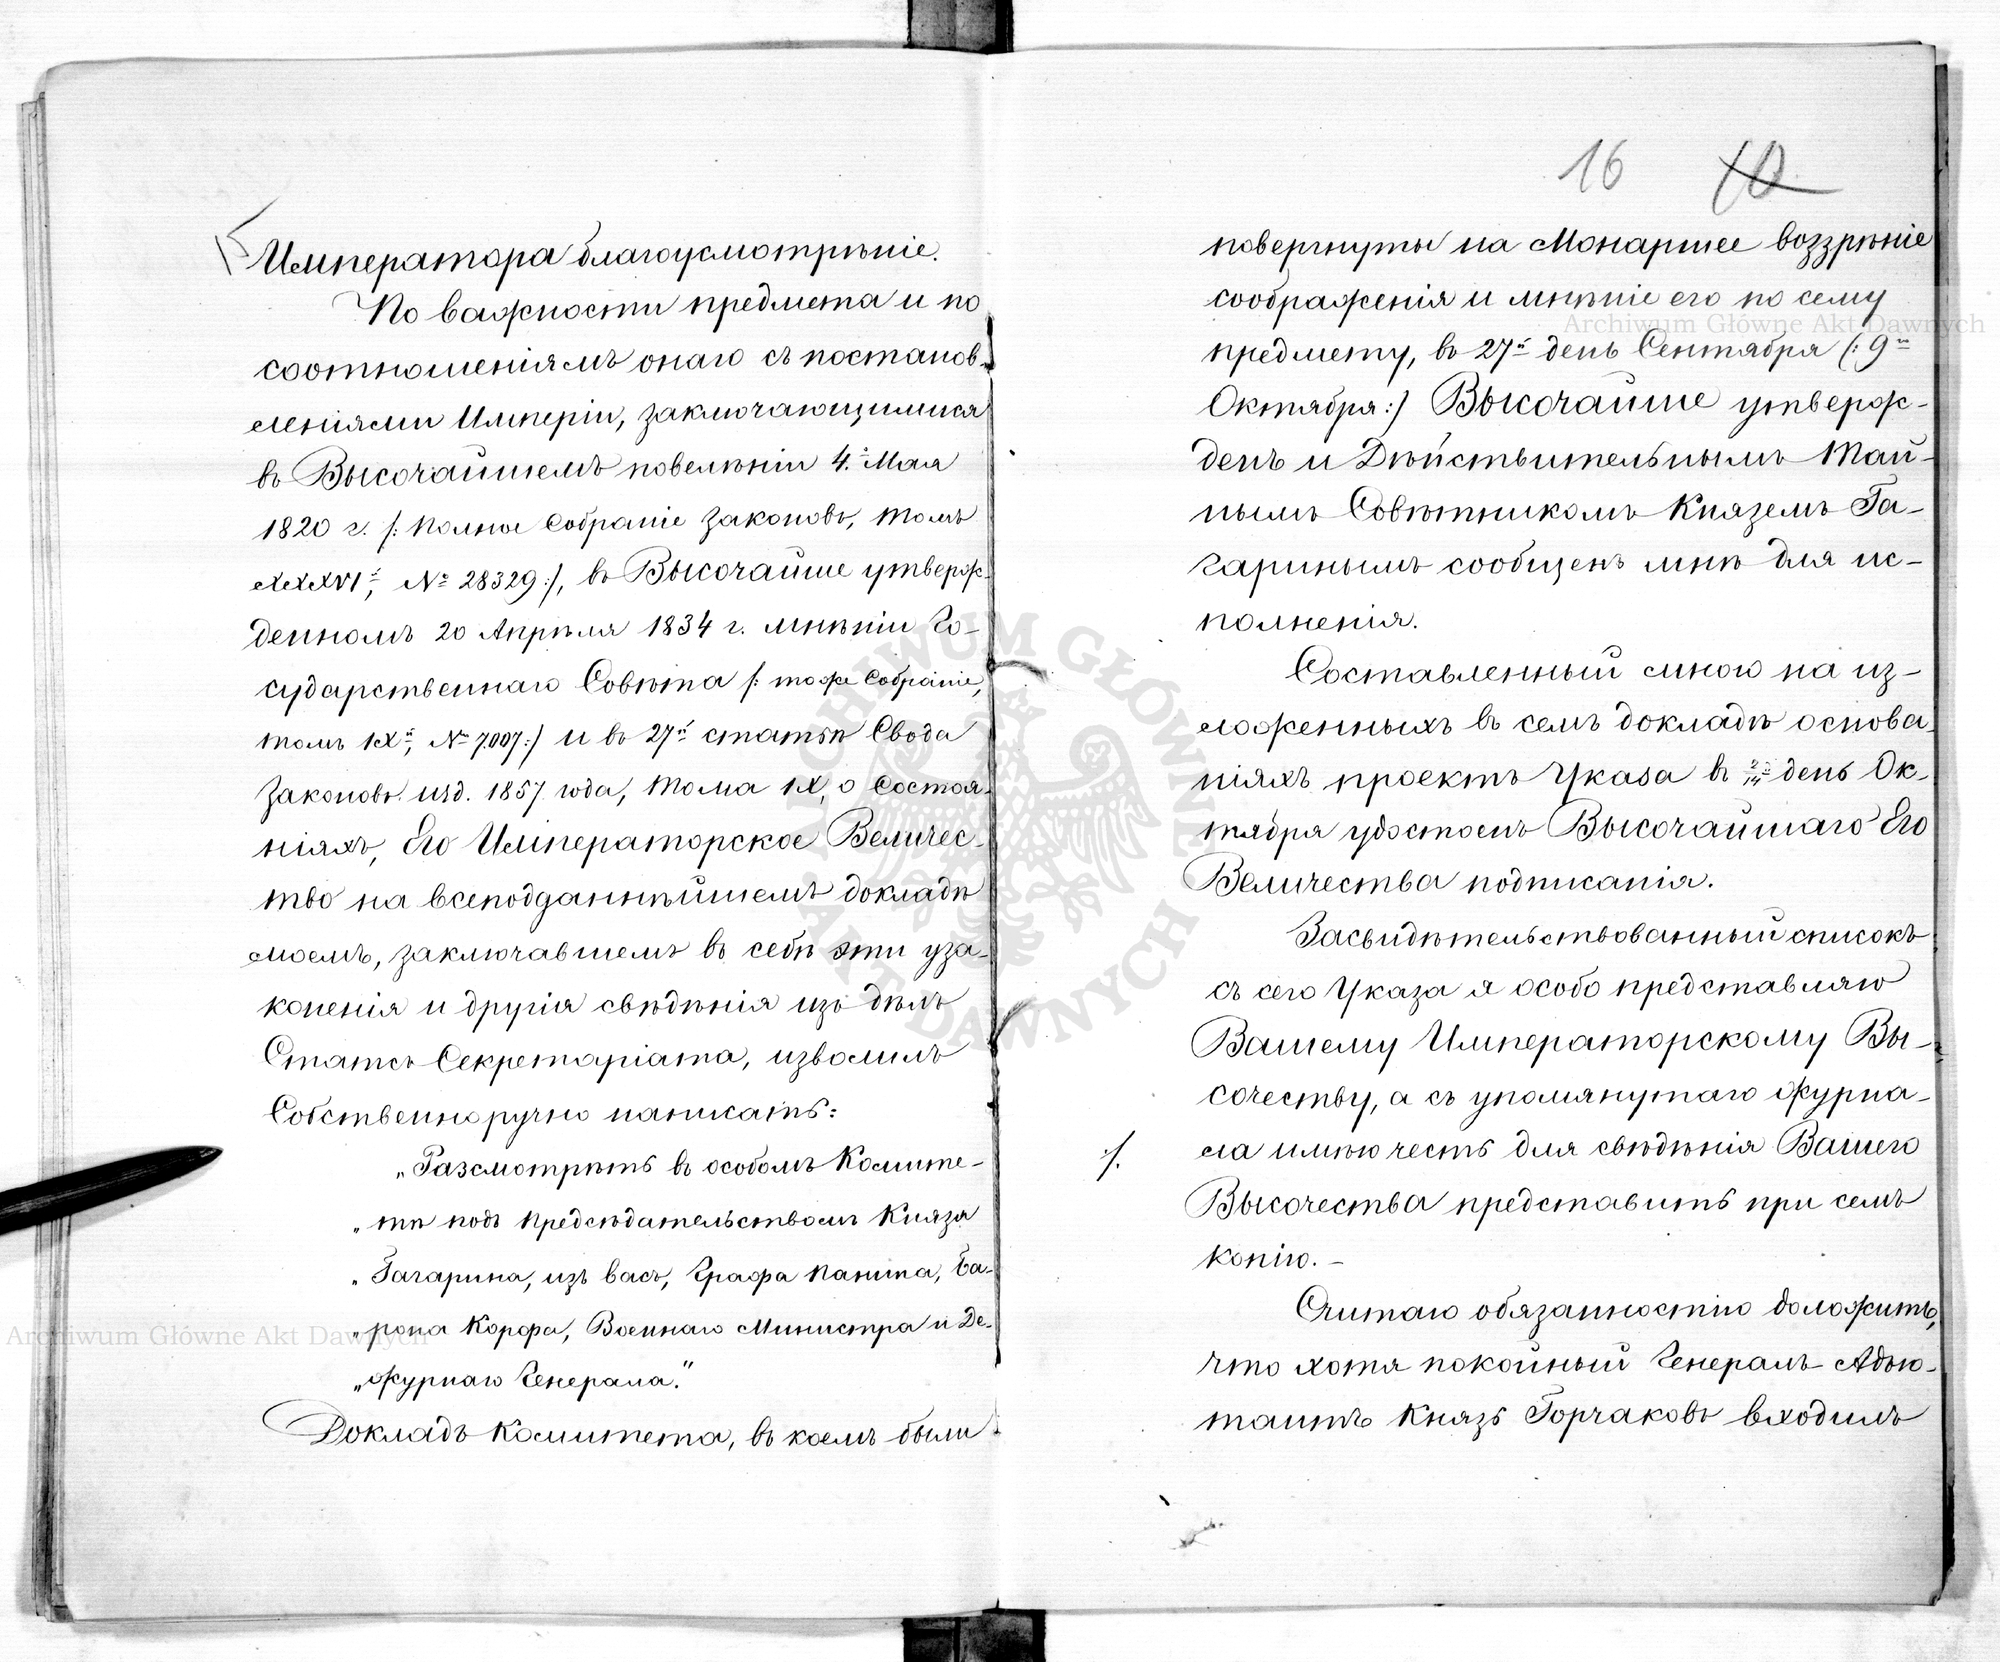 Императора благоусмотрѣніе.
По важности предмета и по
соотношеніямъ онаго съ постанов-
леніями Имперіи, заключающимися
въ Высочайшемъ повелѣніи 4. Мая
1820 г. /: Полное Собраніе Законовъ, томъ
XXXVI й, № 28329:/, въ Высочайше утверж-
денномъ 20 Апрѣля 1834 г. мнѣніи Го-
сударственнаго Совѣта /: тоже Собраніе,
томъ IX й, № 7.007:/ и въ 27 й статьѣ Свода
Законовъ изд. 1857 года, Тома IX, о Состоя-
ніяхъ, Его Императорское Величес-
тво на всеподданнѣйшемъ докладѣ
моемъ, заключавшемъ въ себѣ эти уза-
коненія и другія свѣдѣнія изъ дѣлъ
Статсъ Секретаріата, изволилъ
Собственноручно написать:
„Разсмотрѣть въ особомъ Комите-
„тѣ подъ предсѣдательствомъ Князя
„Гагарина, изъ васъ, Графа Панина, Ба-
„рона Корфа, Военнаго Министра и Де-
„журнаго Генерала."
Докладъ Комитета, въ коемъ были
16 10
повергнуты на Монаршее воззрѣніе
соображенія и мнѣніе его по сему
предмету, въ 27 й день Сентября /: 9 го
Октября:/ Высочайше утверж-
денъ и Дѣйствительнымъ Тай-
нымъ Совѣтникомъ Княземъ Га-
гаринымъ сообщенъ мнѣ для ис-
полненія.
Составленный мною на из-
ложенныхъ въ семъ докладѣ основа-
ніяхъ проектъ Указа въ день Ок-
тября удостоенъ Высочайшаго Его
Величества подписанія.
Засвидѣтельствованный списокъ
съ сего Указа я особо представляю
Вашему Императорскому Вы-
сочеству, а съ упомянутаго журна-
/. ла имѣю честь для свѣдѣнія Вашего
Высочества представить при семъ
копію. –
Считаю обязанностію доложить,
что хотя покойный Генералъ Адъю-
тантъ Князь Горчаковъ входилъ
Archiwum Główne Akt Dawnych
Archiwum Główne Akt Dawnych
ARCHIWUM GŁÓWNE AKT DAWNYCH